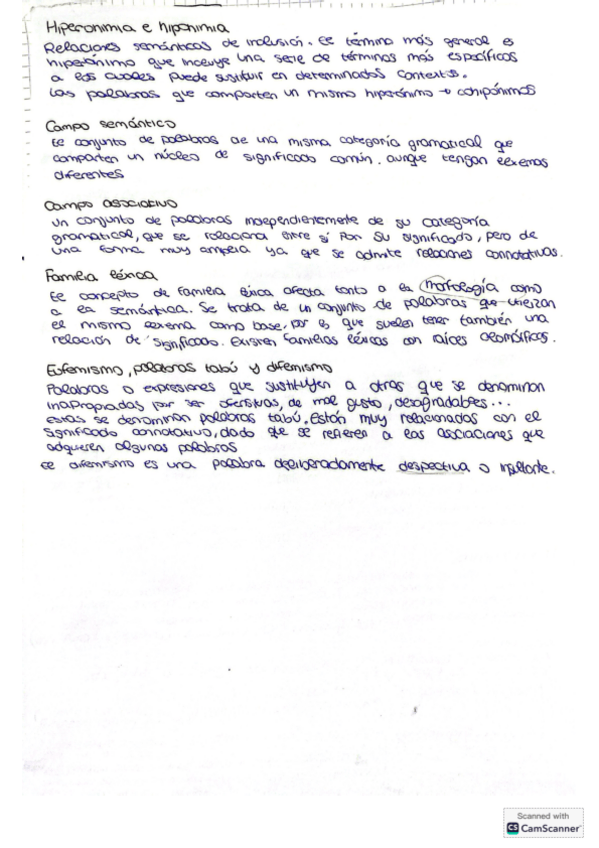 Hiperonimia e hiponimia
Relaciones semánticas de inclusión. El término más general es
hiperónimo que incluye una serie de términos más específicos
a los cuales puede sustituir en determinados contextos.
Las palabras que comparten un mismo hiperónimo → cohipónimos
Campo semántico
El conjunto de palabras de una misma categoría gramatical que
comparten un núcleo de significado común. aunque tengan lexemas
diferentes
Campo asociativo
Un conjunto de palabras independientemente de su categoría
gramatical, que se relaciona entre sí por su significado, pero de
una forma muy amplia ya que se admite relaciones connotativas.
Familia léxica
El concepto de familia léxica afecta tanto a la morfología como
a la semántica. Se trata de un conjunto de palabras que utilizan
el mismo lexema como base, por lo que suelen tener también una
relación de significados. Existen familias léxicas con raíces alomórficas.
Eufemismo, palabras tabú y difemismo
Palabras o expresiones que sustituyen a otras que se denominan
inapropiadas por ser ofensivas, de mal gusto, desagradables...
estas se denominan palabras tabú. Están muy relacionados con el
significado connotativo, dado que se refieren a las asociaciones que
adquieren algunas palabras
El difemismo es una palabra deliberadamente despectiva o insultante.
Scanned with
CS CamScanner